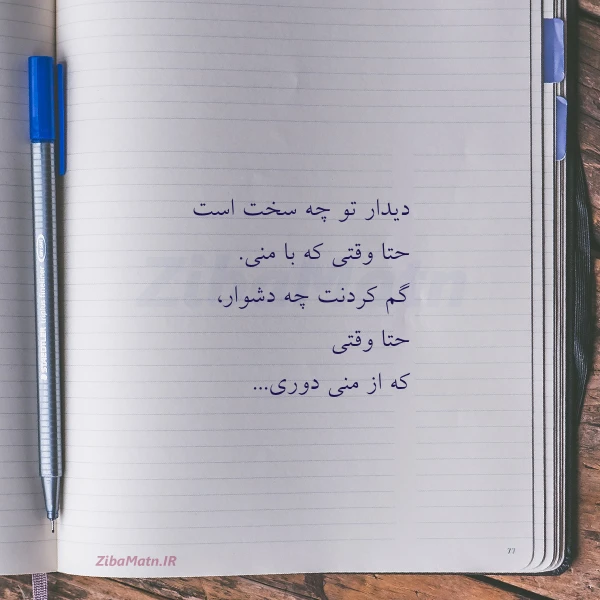 دیدار تو چه سخت است
حتا وقتی که با منی.
گم کردنت چه دشوار،
حتا وقتی
که از منی دوری...
ZibaMatn
ZibaMatn.IR
STAEDTLER triplus fineliner